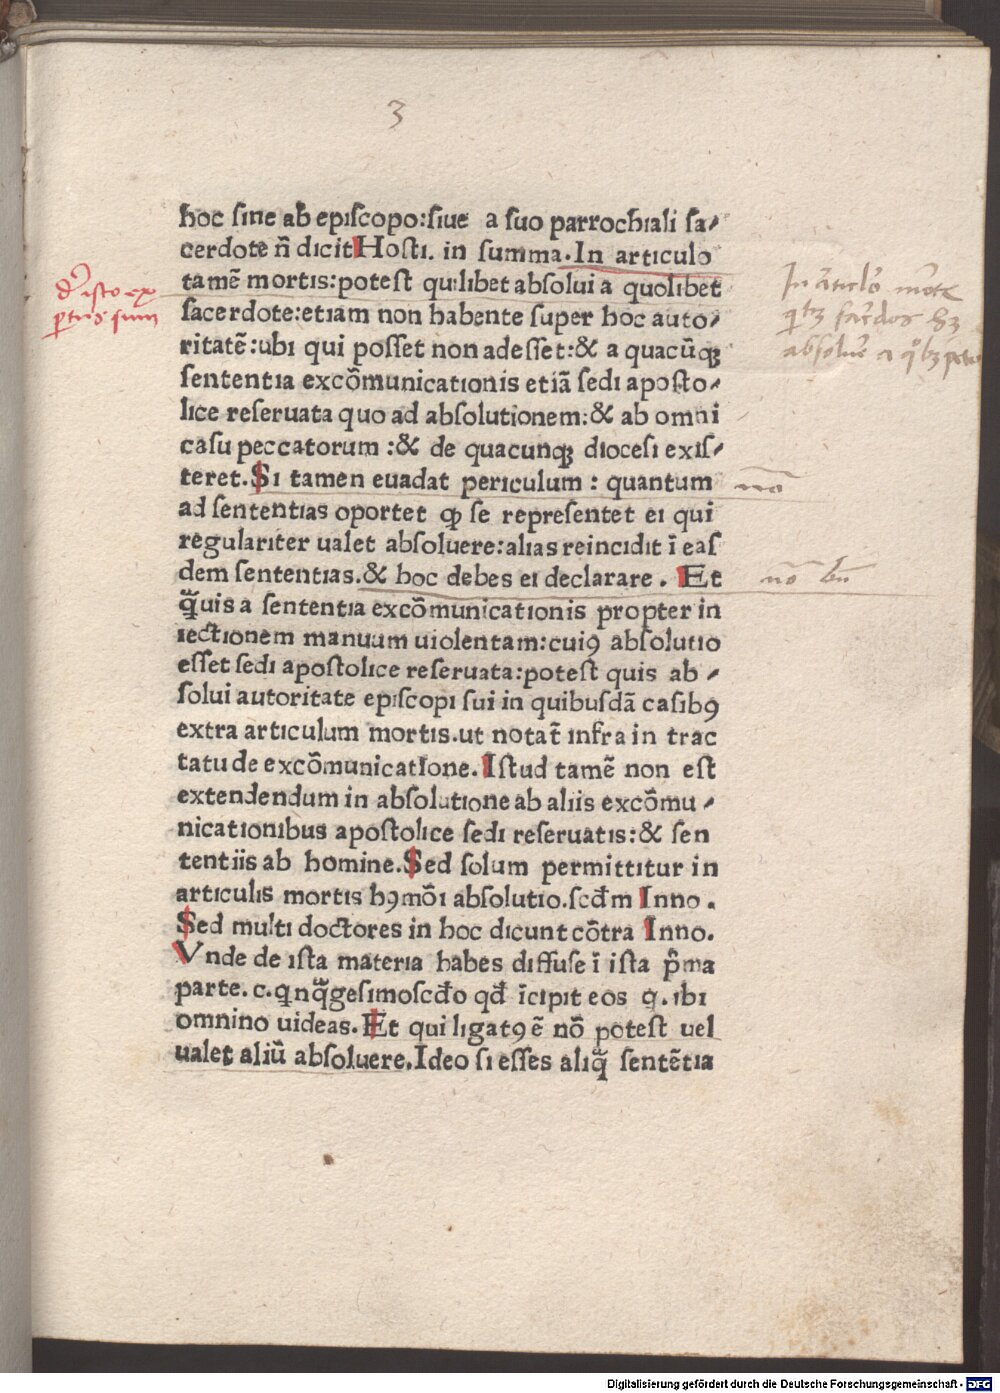 3
hoc ſine ab epiſcopo:ſiue a ſuo parrochiali ſa⸗
cerdote ñ dicit Hoſti. in ſumma. In articulo
tamẽ mortis:poteſt quilibet abſolui a quolibet
ſacerdote:etiam non habente ſuper hoc auto⸗
ritatẽ:ubi qui poſſet non adeſſet:& a quacũqꝫ
ſententia excõmunicationis etiã ſedi apoſto⸗
lice reſeruata quo ad abſolutionem:& ab omni
caſu peccatorum :& de quacunqꝫ dioceſi exiſ⸗
teret. Si tamen euadat periculum : quantum
ad ſententias oportet ꝙ ſe repreſentet ei qui
regulariter ualet abſoluere:alias reincidit ĩ eaſ
dem ſententias.& hoc debes ei declarare. Et
q̃uis a ſententia excõmunicationis propter in
iectionem manuum uiolentam:cuiꝰ abſolutio
eſſet ſedi apoſtolice reſeruata:poteſt quis ab ⸗
ſolui autoritate epiſcopi ſui in quibuſdã caſibꝰ
extra articulum mortis.ut notat̃ infra in trac
tatu de excõmunicatione. Iſtud tamẽ non eſt
extendendum in abſolutione ab aliis excõmu ⸗
nicationibus apoſtolice ſedi reſeruatis:& ſen
tentiis ab homine. Sed ſolum permittitur in
articulis mortis hꝰmõi abſolutio.ſcd̃m Inno.
Sed multi doctores in hoc dicunt cõtra Inno.
Vnde de iſta materia habes diffuſe ĩ iſta p̃ma
parte. c. qnq̃geſimoſcd̃o qd̃ ĩcipit eos q. ibi
omnino uideas. Et qui ligatꝰ ẽ nõ poteſt uel
ualet aliũ abſoluere. Ideo ſi eſſes aliq̃ ſentẽtia
In articlo morte
abſoluere a
nõ
nõ
iſto
ſum
Digitalisierung gefördert durch die Deutsche Forschungsgemeinschaft - DFG